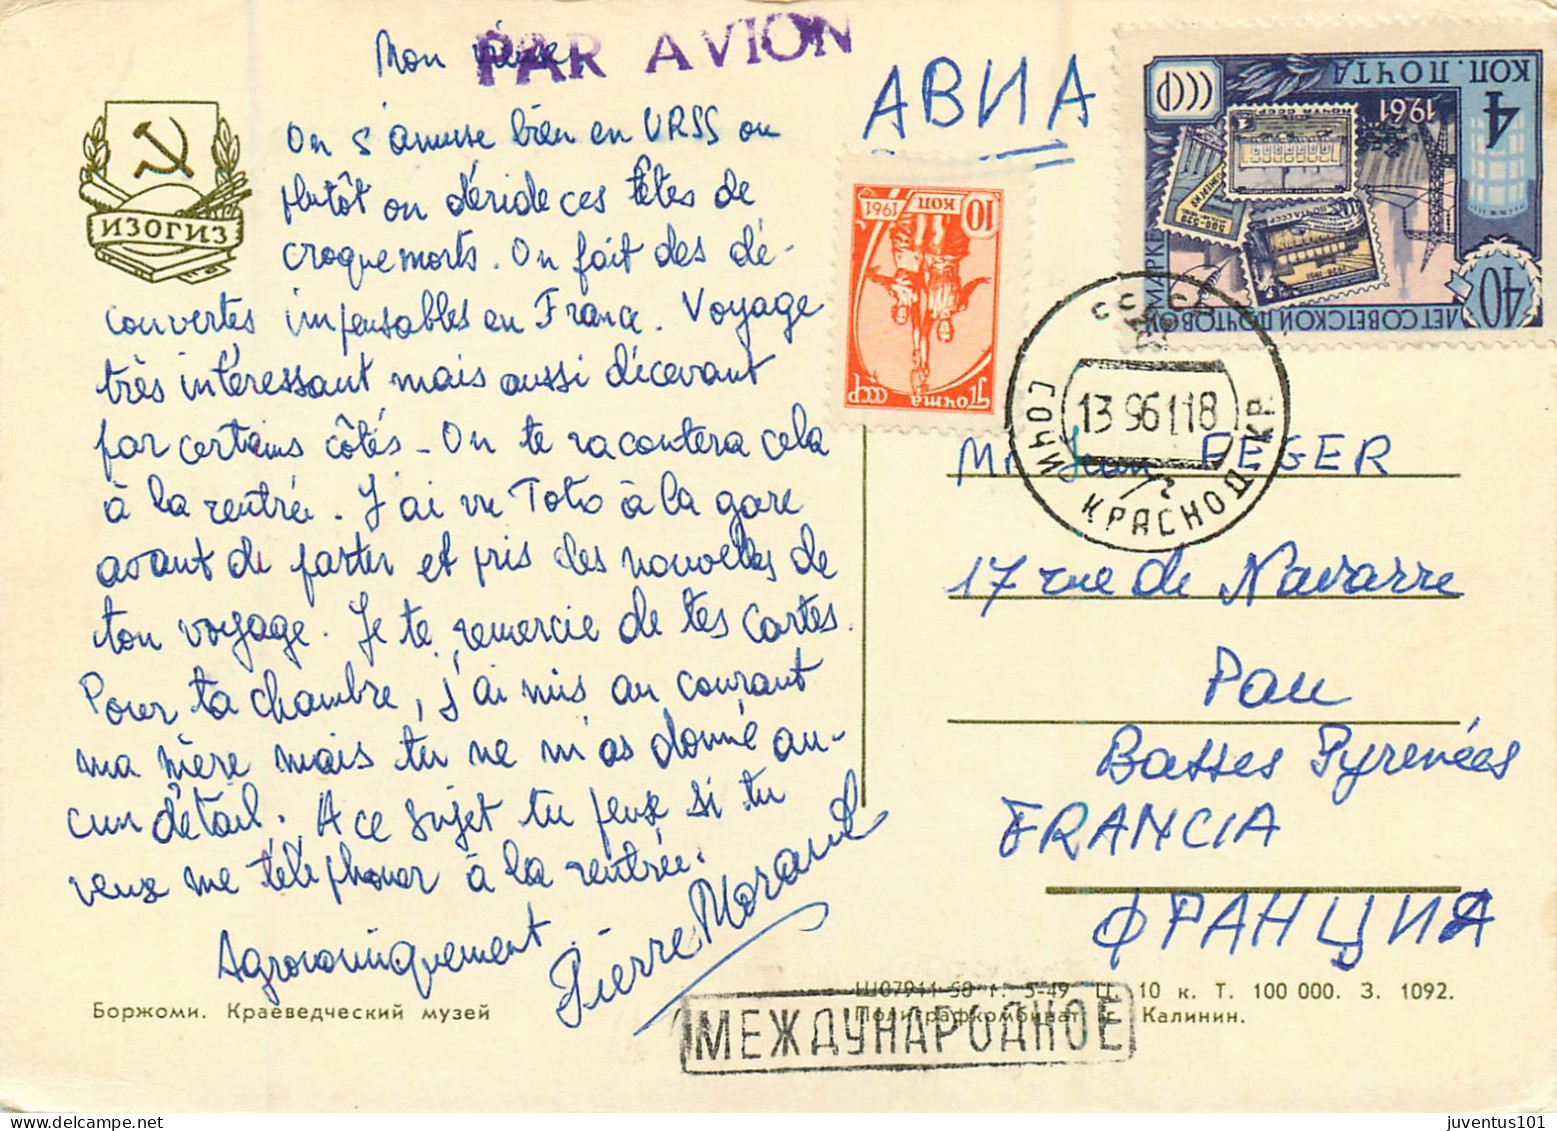 PAR AVION
Mon vieux,
АВИА
On s'amuse bien en URSS ou
plutôt on déride ces têtes de
croquemorts. On fait des dé-
couvertes impensables en France. Voyage
très intéressant mais aussi décevant
par certains côtés - On te racontera cela
à la rentrée. J'ai vu Toto à la gare
avant de partir et pris des nouvelles de
ton voyage. Je te remercie de tes cartes.
Pour ta chambre, j'ai mis au courant
ma mère mais tu ne m'as donné au-
cun détail. A ce sujet tu peux si tu
veux me téléphoner à la rentrée.
Agronomiquement
Pierre Morand
ИЗОГИЗ
4
КОП. ПОЧТА
1961
СССР
40
ЛЕТ СОВЕТСКОЙ ПОЧТОВОЙ МАРКЕ
10
КОП
1961
Почта
СССР
СССР
СОЧИ
КРАСНОД. КР.
13 9 61 18
Mr Jean FEGER
17 rue de Navarre
Pau
Basses Pyrenées
FRANCIA
ФРАНЦИЯ
Боржоми. Краеведческий музей
Ш07911 г. 5-49 Ц. 10 к. Т. 100 000. З. 1092.
Полиграфкомбинат г. Калинин.
МЕЖДУНАРОДНОЕ
juventus101